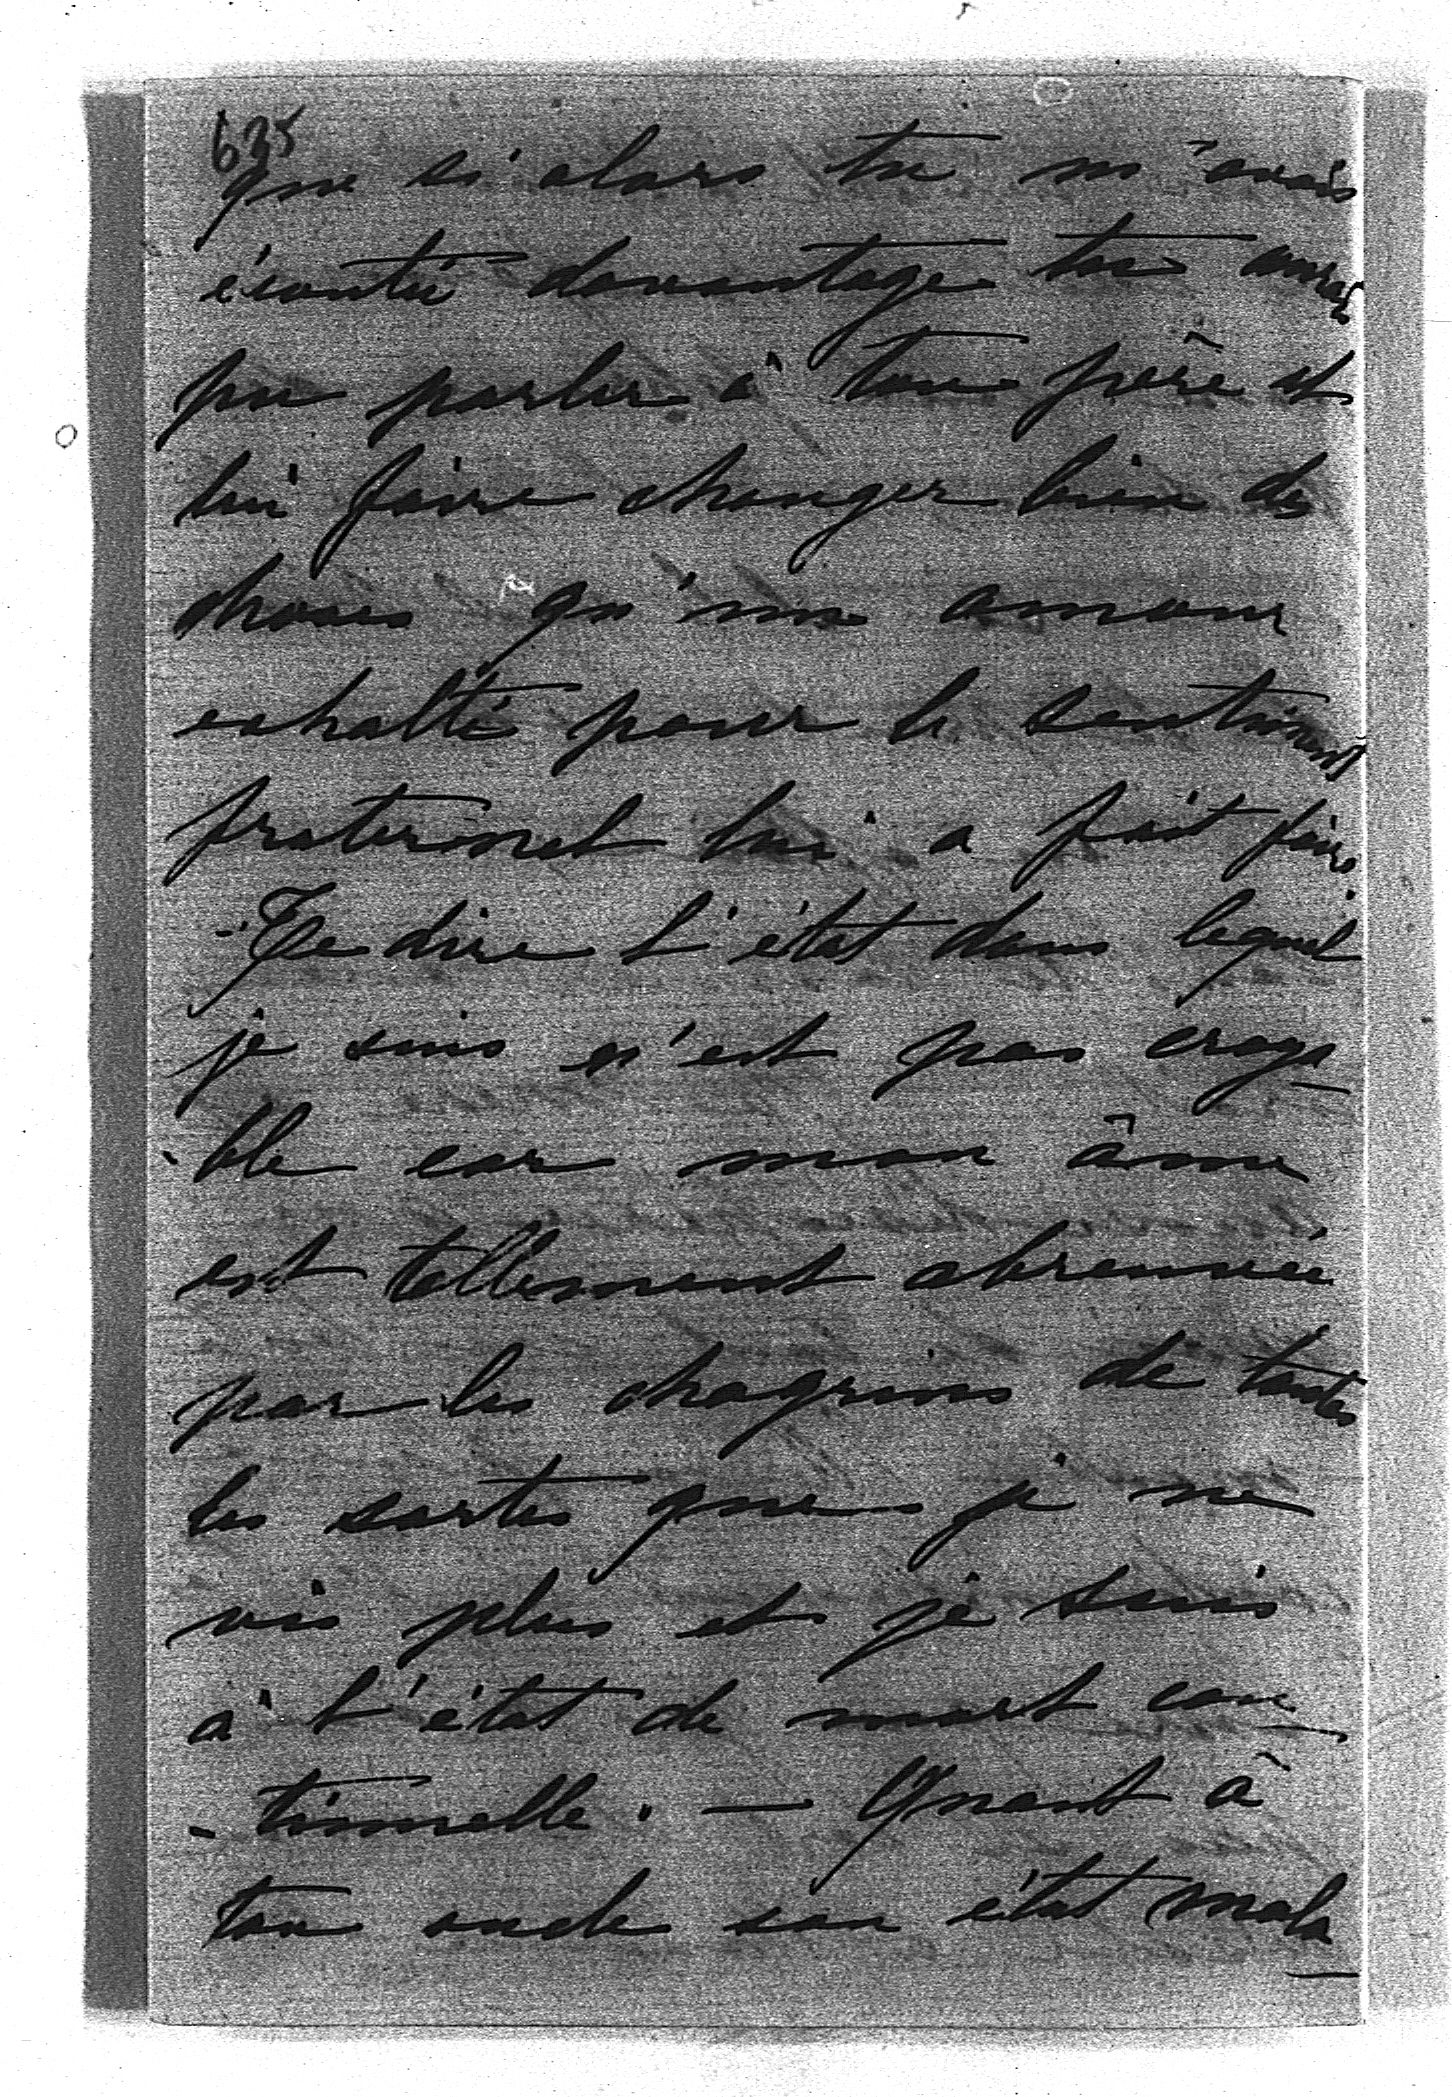 635
que si alors tu m'avais
écoutée davantage tu aurais
pu parler à ton père et
lui faire changer bien des
choses qu'un amour
exhalté pour le sentiment
fraternel lui a fait faire.
- Te dire l'état dans lequel
je suis n'est pas croya
- ble car mon âme
est tellement abreuvée
par les chagrins de toutes
les sortes que je ne
vis plus et je suis
à l'état de mort con
- tinuelle. — Quant à
ton oncle son état mala